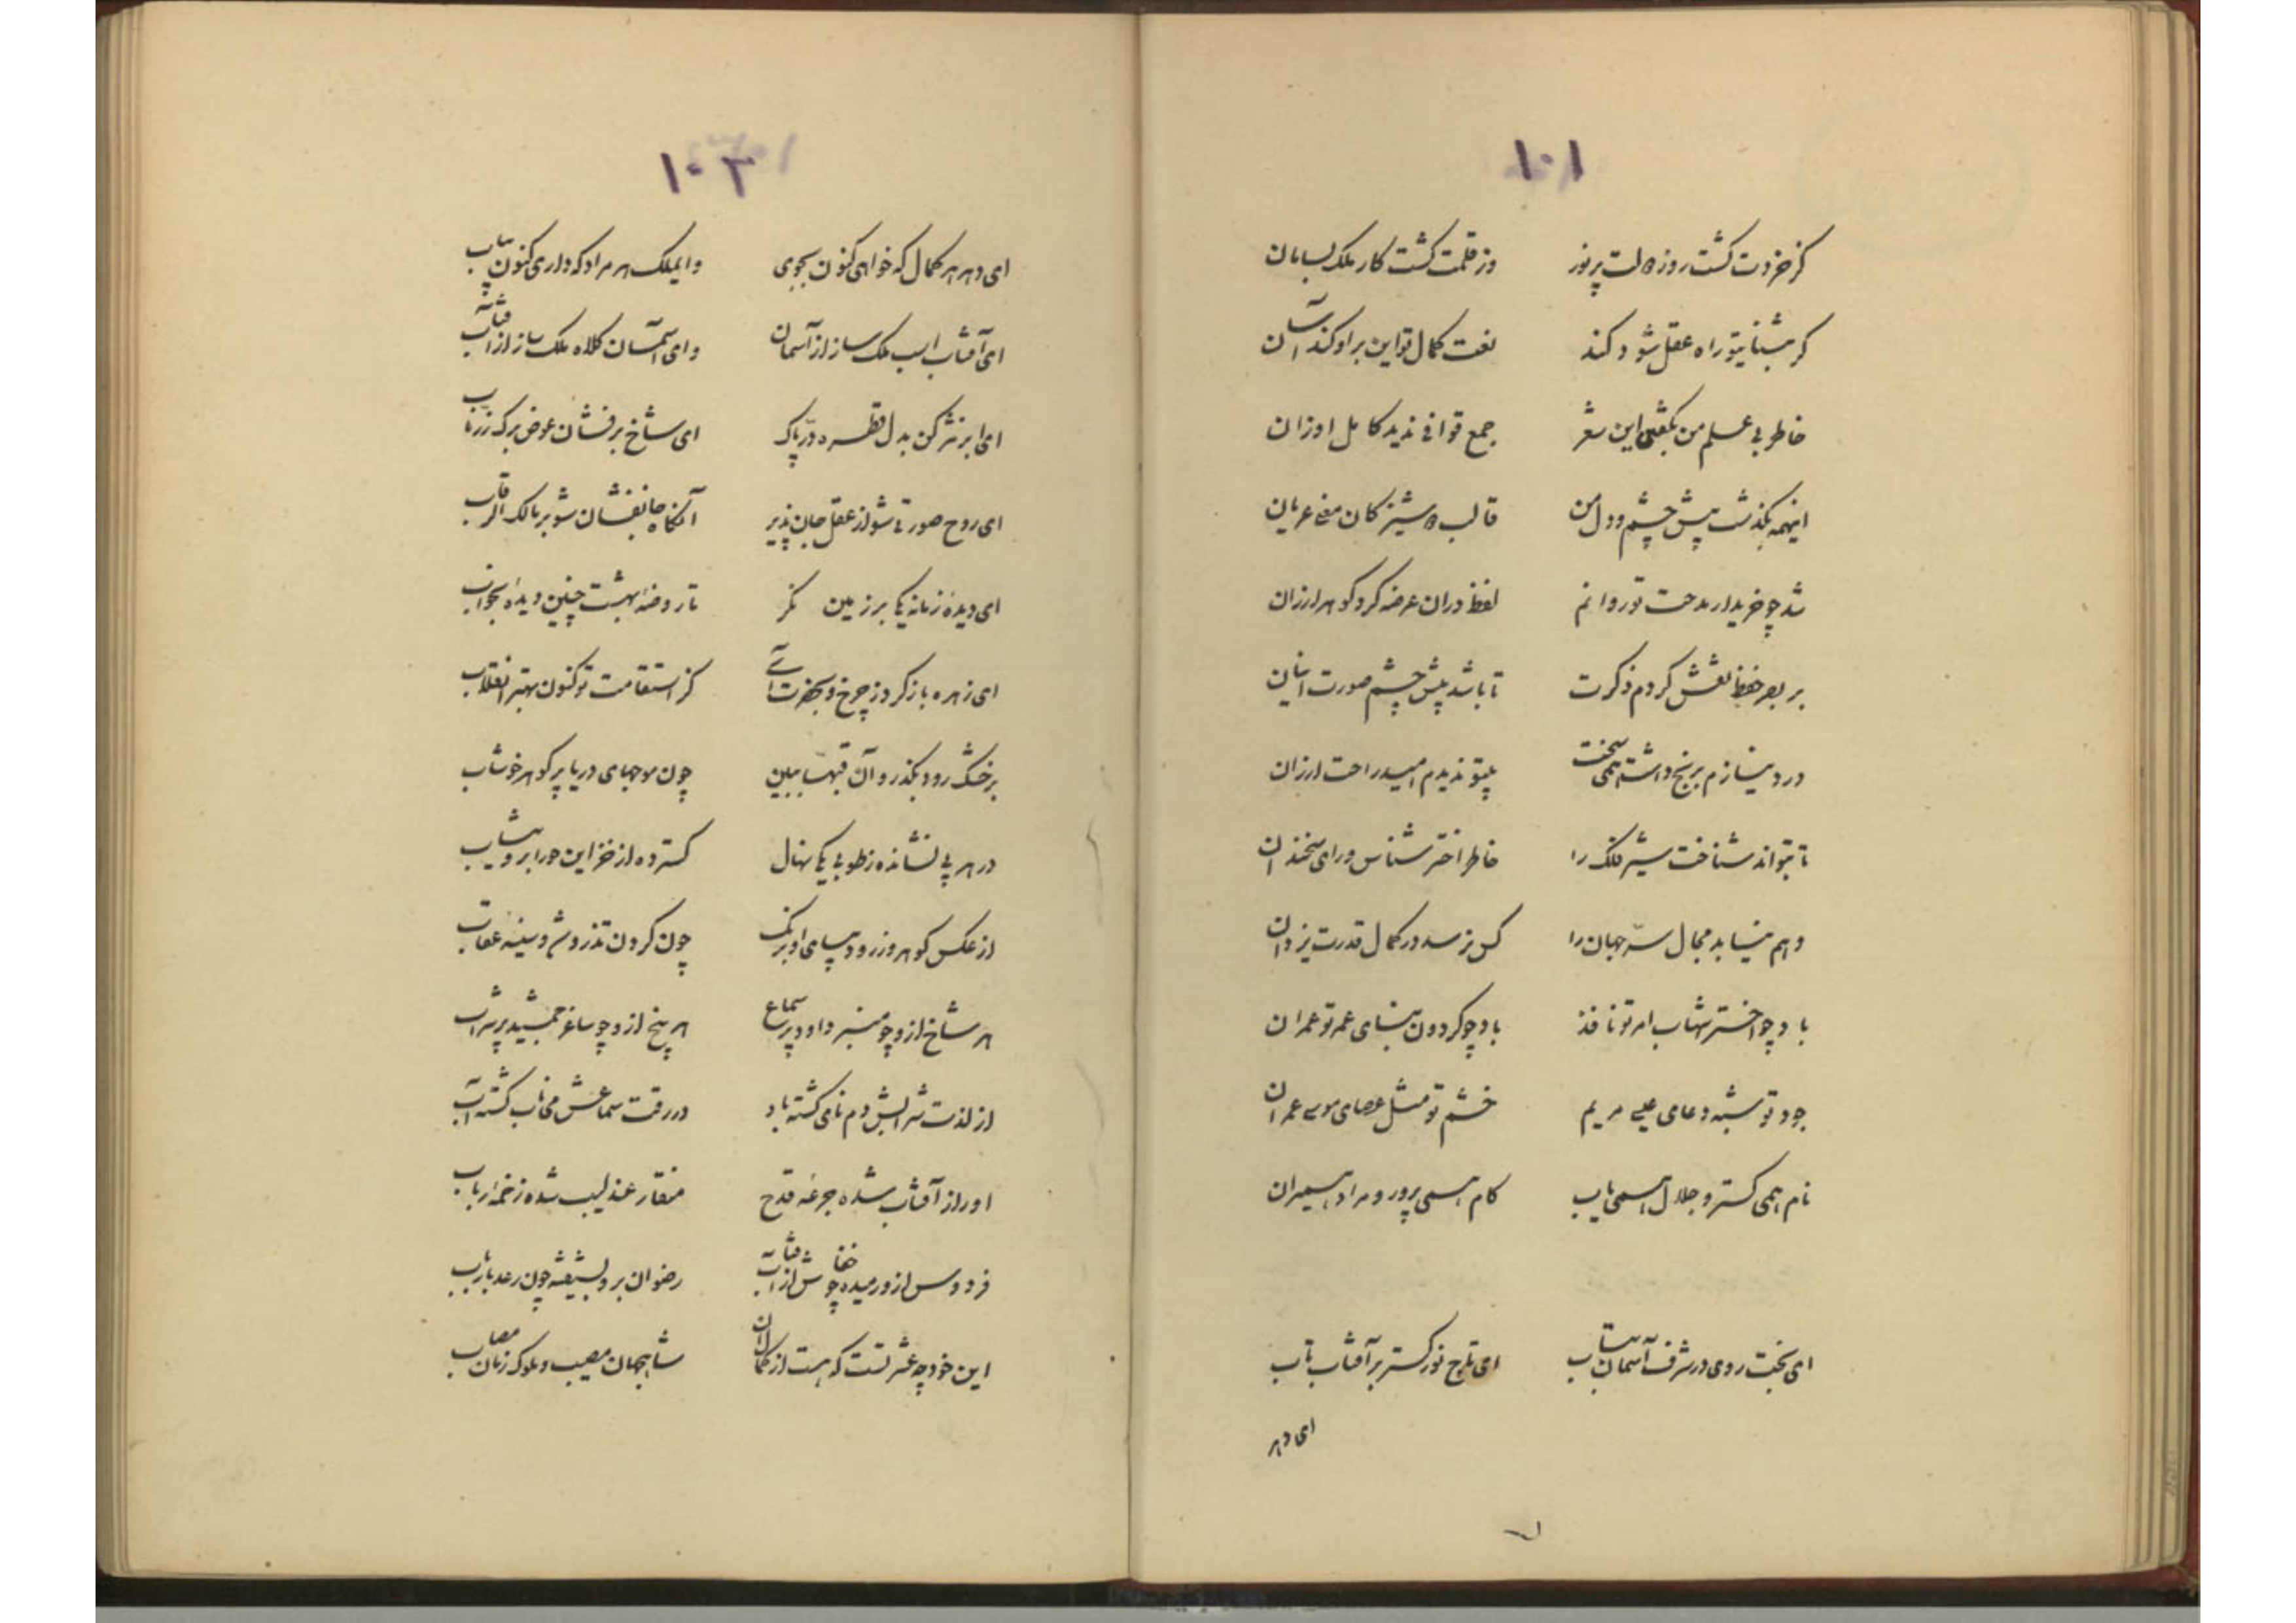 ۱۰۱
کز خردت کشت روز دولت پرنور وز قلمت کشت کار ملک بسامان
کر بشنا بتو راه عقل شود کند نعت کمال تو این براو کند آسان
خاطر بی علم من بکفتی این شعر جمع قوافی ندید کامل اوزان
اینهمه بکذشت پیش چشم و دل من قالب کان معنی عریان
شد چو خریدار مدحت تو روانم لفظ دران عرضه کرد کوهر ارزان
بر بصر حفظ نقش کردم ذکرت تا باشد پیش چشم صورت انسان
درد نیازم برنج داشت همی سخت بیتو ندیدم امید راحت ارزان
تا بتواند شناخت سیر فلک را خاطر اختر شناس و رای سخندان
وهم نیابد مجال سرّ جهان را کس نرسد در کمال قدرت یزدان
باد چو اختر شهاب امر تو نافذ باد چو کردون بنای عمر تو عمران
جود تو شبه دعای عیسی مریم خشم تو مثل عصای موسی عمران
نام همی کستر و جلال همی یاب کام همی پرور و مراد همیران
ای بخت روی در شرف آسمان بتاب ای تاج نور کستر بر آفتاب تاب
ای دهر
۱۰۳
ای دهر هر کمال که خواهی کنون بجوی وایملک هر مراد که داری کنون بیاب
ای آفتاب اسب ملک ساز از آسمان وای آسمان کلاه ملک ساز از آفتاب
ای ابر نثر کن بدل قطره درّ پاک ای شاخ بر فشان عوض برک زرّ ناب
ای روح صورتی شو از عقل جان پذیر آنکاه جانفشان شو بر مالک الرقاب
ای دیدهٔ زمانه یکی بر زمین نکر تا روضهٔ بهشت چنین دیدهٔ بخواب
ای زهره باز کرد ز چرخ و بحضرت آی کز استقامت تو کنون بهتر انقلاب
بر خشک رود بکذر و آن قبهّا ببین چون موجهای دریا پر کوهر خوشاب
در هر پی نشانده ز طوبی یکی نهال کسترده از خزاین حورا برو ثیاب
از عکس کوهر و زر و دیبای او برنک چون کردن تذروش و سینهٔ عقاب
هر شاخ ازو چو منبر داود پر سماع هر بیخ ازو چو ساغر جمشید پر شراب
از لذت شرابش دم نامی کشته باد در رقت سماعش می ناب کشته آب
او را ز آفتاب شده جرعهٔ قدح منقار عندلیب شده زخمهٔ رباب
فردوس ازو رمیده چو خفاش از آفتاب رضوان برو بشیفته چون رعد با رباب
این خود چه عشرتست که هست از کمال آن شاهجهان مصیب و ملوک زمان مصاب